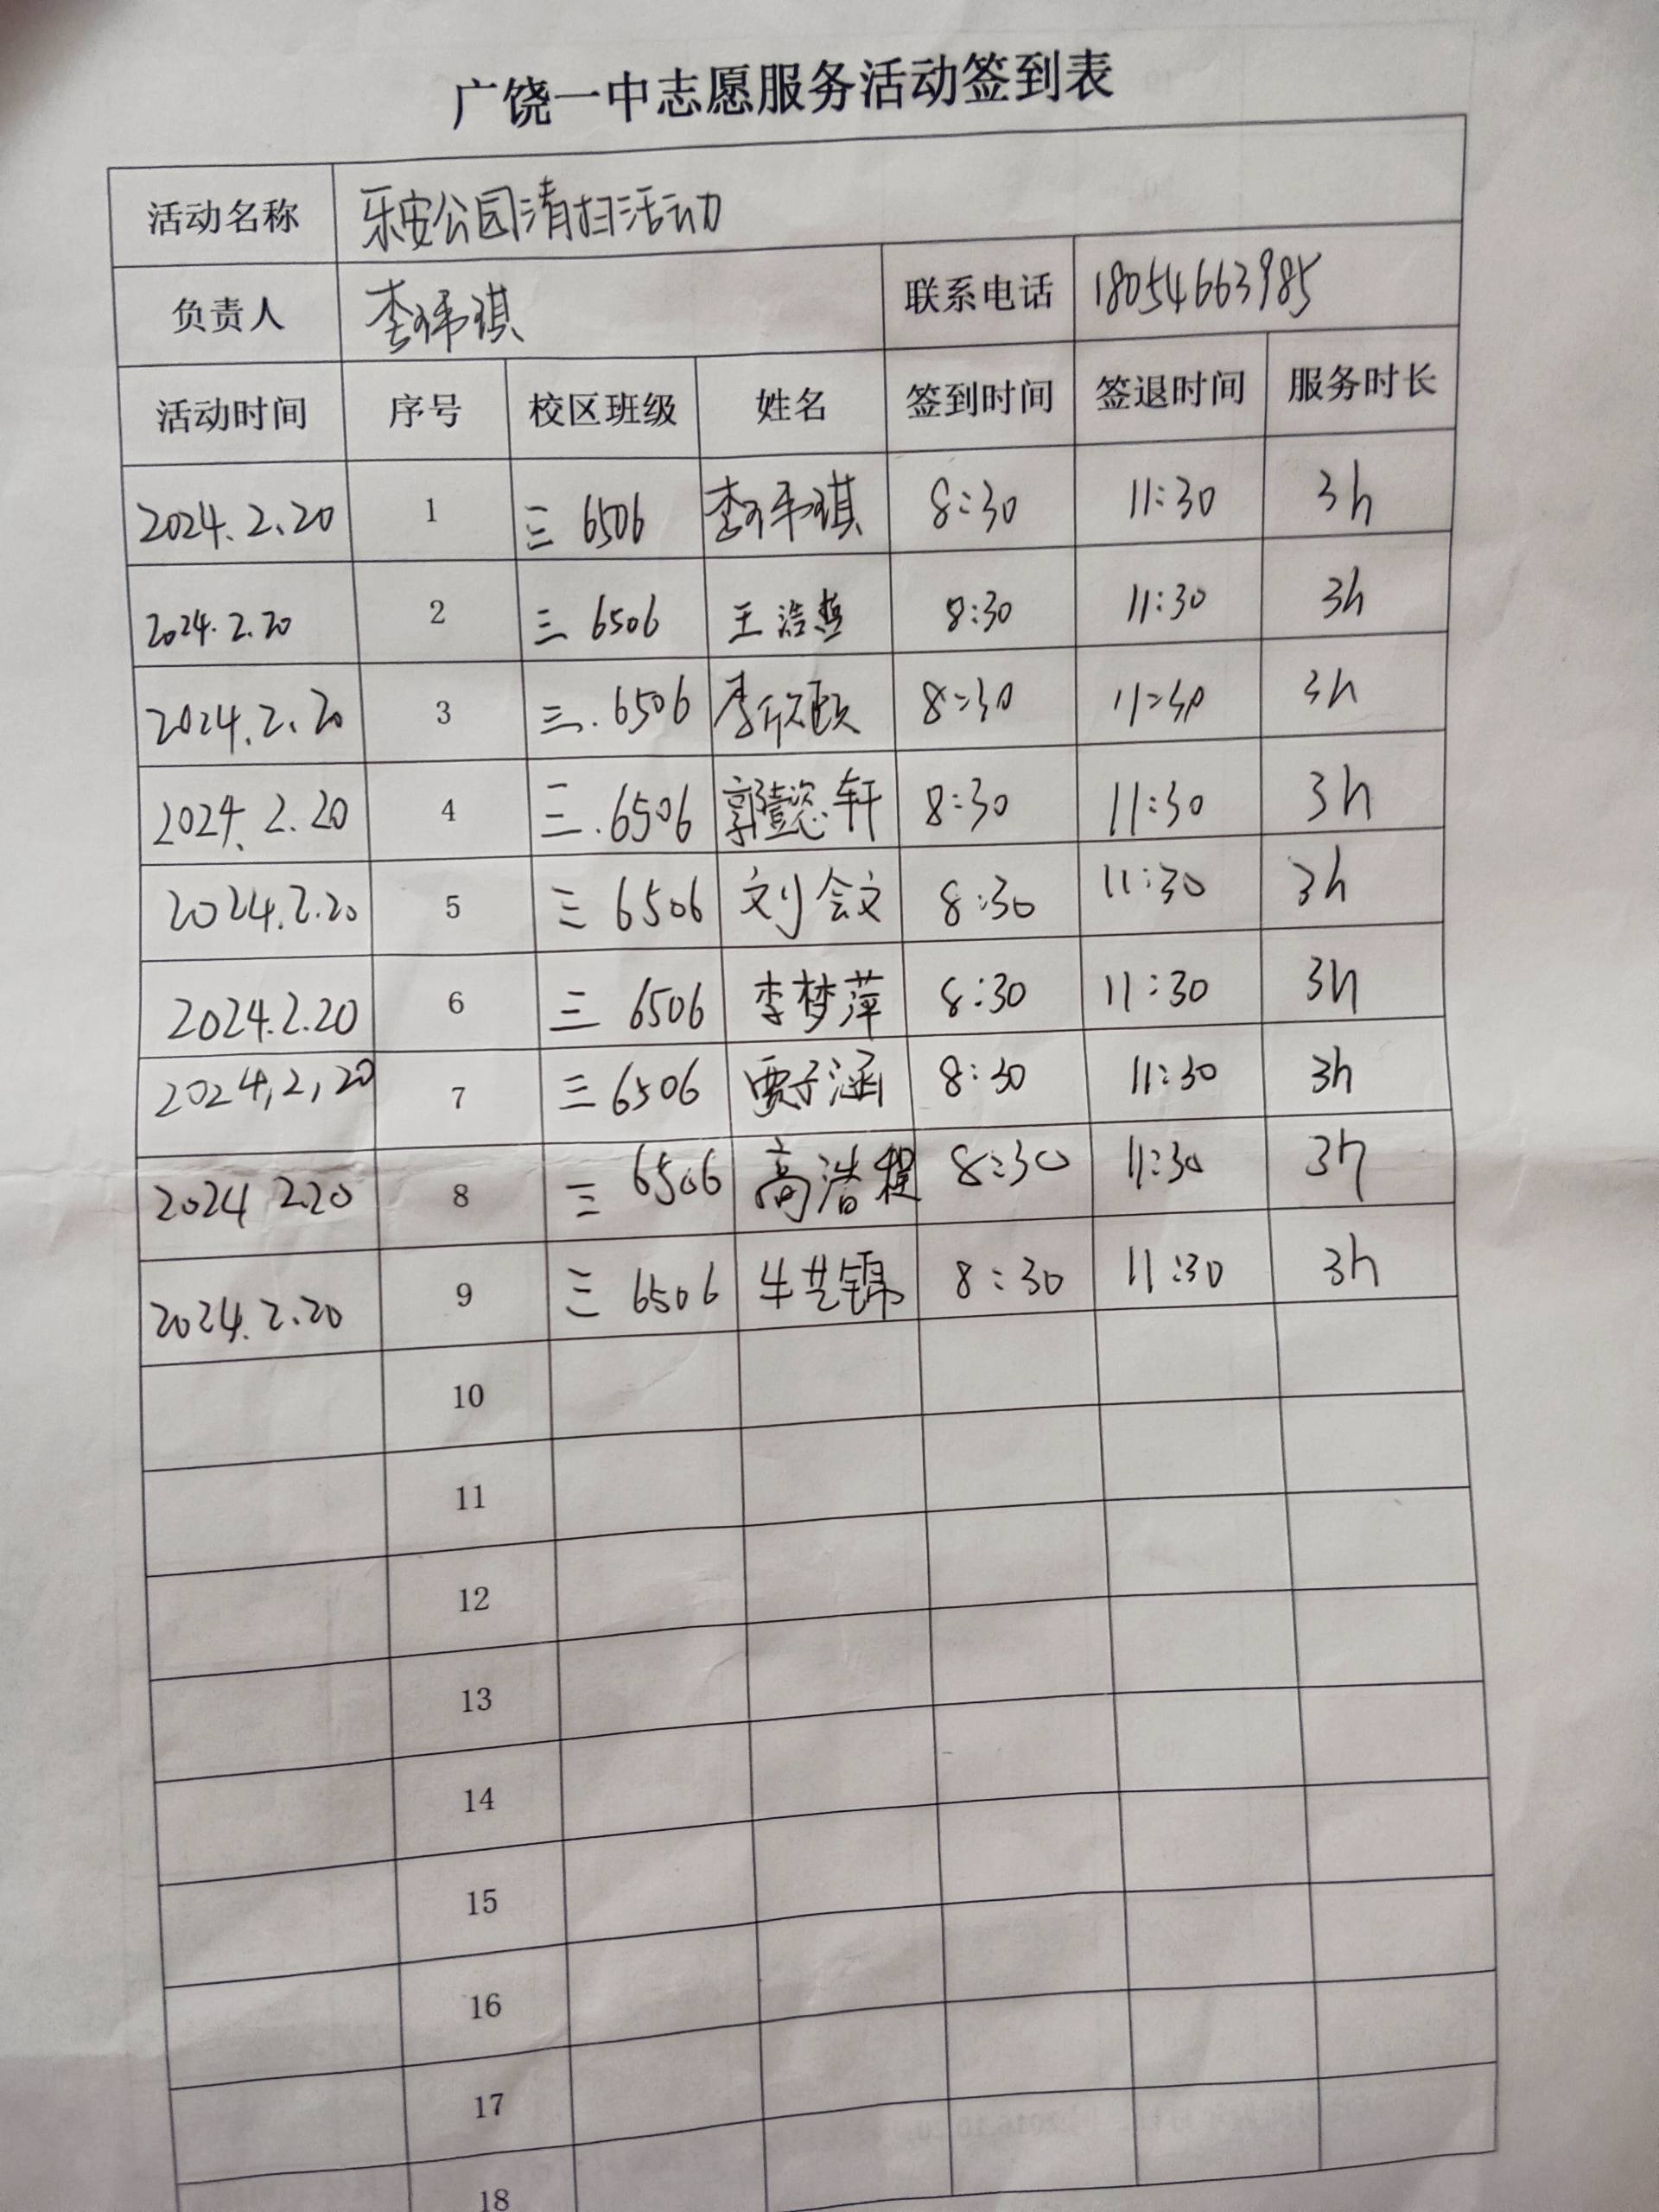 广饶一中志愿服务活动签到表
活动名称 乐安公园清扫活动
负责人 李玮琪 联系电话 18054663985
活动时间 序号 校区班级 姓名 签到时间 签退时间 服务时长
2024.2.20 1 三 6506 李玮琪 8:30 11:30 3h
2024.2.20 2 三 6506 王浩 8:30 11:30 3h
2024.2.20 3 三.6506 李欣颐 8:30 11:30 3h
2024.2.20 4 三.6506 郭懿轩 8:30 11:30 3h
2024.2.20 5 三 6506 刘会文 8:30 11:30 3h
2024.2.20 6 三 6506 李梦萍 8:30 11:30 3h
2024,2,20 7 三 6506 贾子涵 8:30 11:30 3h
2024 2.20 8 三 6506 高浩程 8:30 11:30 3h
2024.2.20 9 三 6506 牛艺锦 8:30 11:30 3h
10
11
12
13
14
15
16
17
18